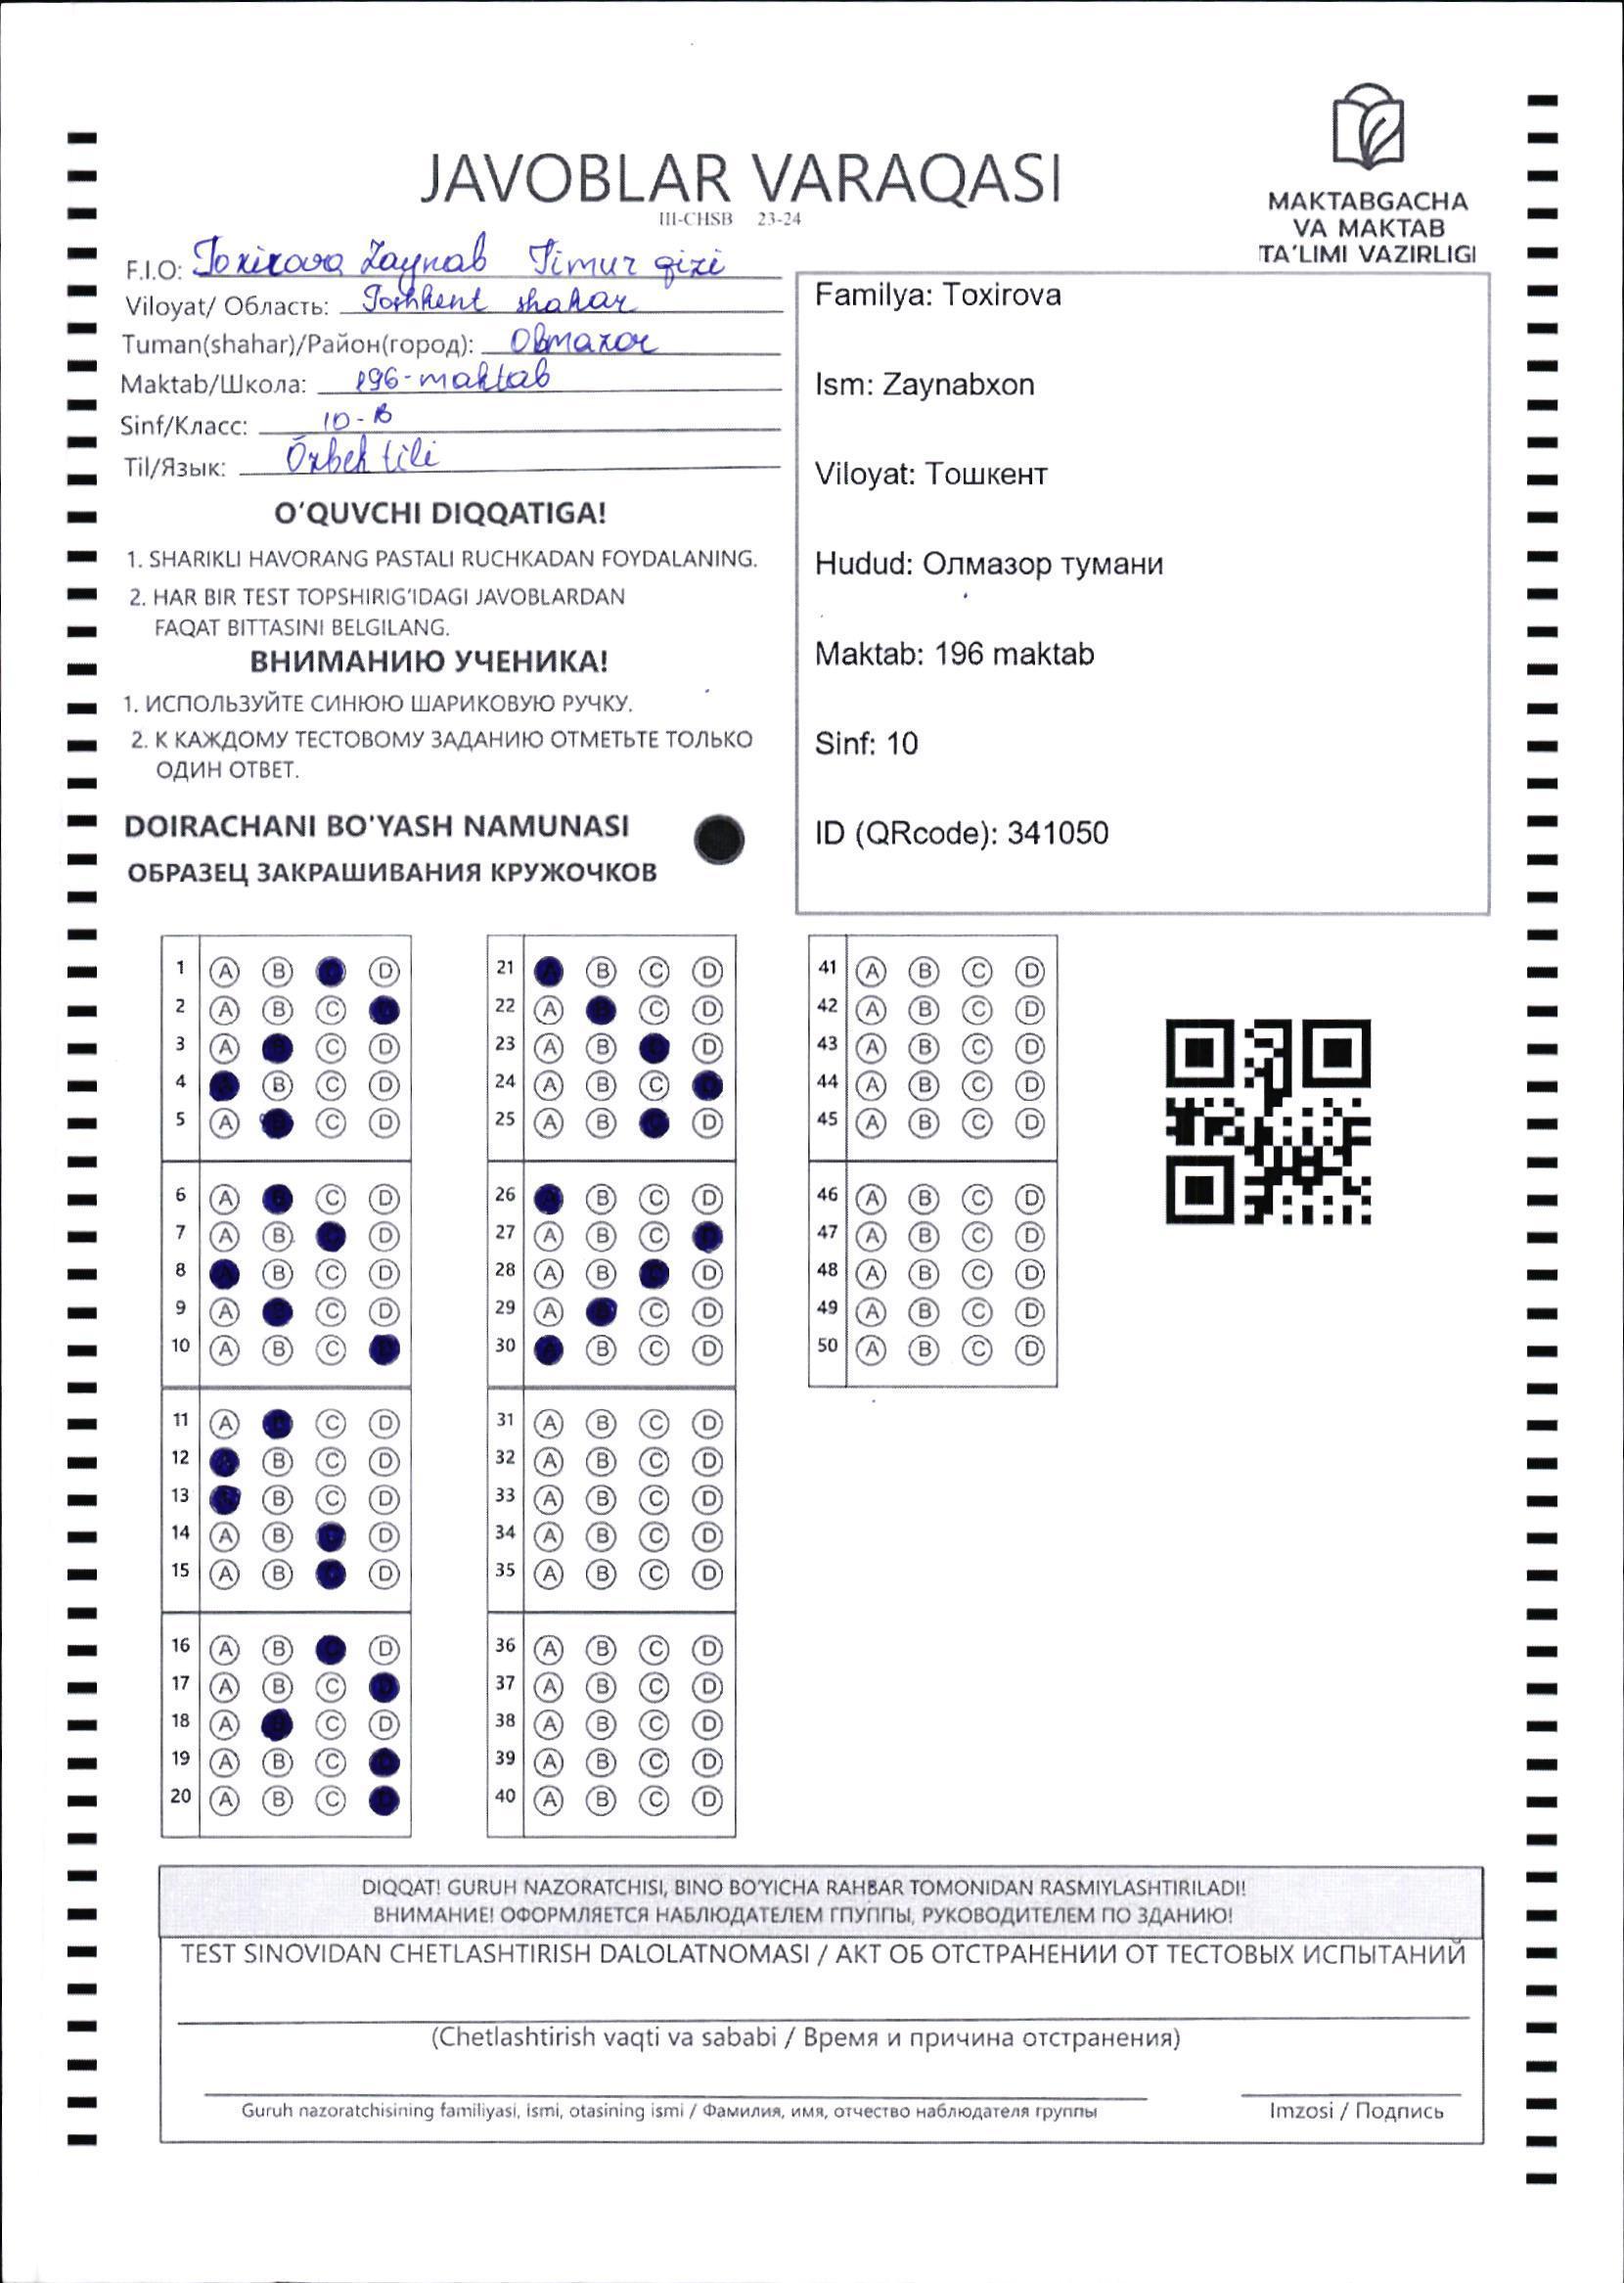 JAVOBLAR VARAQASI
III-CHSB 23-24
MAKTABGACHA
VA MAKTAB
TA'LIMI VAZIRLIGI
F.I.O: Toxirova Zaynab Timur qizi
Viloyat/ Область: Toshkent shahar
Tuman(shahar)/Район(город): Olmazor
Maktab/Школа: 196-maktab
Sinf/Класс: 10-B
Til/Язык: Õzbek tili
O'QUVCHI DIQQATIGA!
1. SHARIKLI HAVORANG PASTALI RUCHKADAN FOYDALANING.
2. HAR BIR TEST TOPSHIRIG'IDAGI JAVOBLARDAN
FAQAT BITTASINI BELGILANG.
ВНИМАНИЮ УЧЕНИКА!
1. ИСПОЛЬЗУЙТЕ СИНЮЮ ШАРИКОВУЮ РУЧКУ.
2. К КАЖДОМУ ТЕСТОВОМУ ЗАДАНИЮ ОТМЕТЬТЕ ТОЛЬКО
ОДИН ОТВЕТ.
DOIRACHANI BO'YASH NAMUNASI
ОБРАЗЕЦ ЗАКРАШИВАНИЯ КРУЖОЧКОВ
Familya: Toxirova
Ism: Zaynabxon
Viloyat: Тошкент
Hudud: Олмазор тумани
Maktab: 196 maktab
Sinf: 10
ID (QRcode): 341050
1 A B D
2 A B C
3 A C D
4 A B C D
5 A C D
6 A C D
7 A B D
8 A B C D
9 A C D
10 A B C
11 A C D
12 B C D
13 B C D
14 A B D
15 A B D
16 A B D
17 A B C D
18 A B C D
19 A B C
20 A B C
21 A B C D
22 A C D
23 A B D
24 A B C
25 A B D
26 B C D
27 A B C
28 A B D
29 A C D
30 B C D
31 A B C D
32 A B C D
33 A B C D
34 A B C D
35 A B C D
36 A B C D
37 A B C D
38 A B C D
39 A B C D
40 A B C D
41 A B C D
42 A B C D
43 A B C D
44 A B C D
45 A B C D
46 A B C D
47 A B C D
48 A B C D
49 A B C D
50 A B C D
DIQQAT! GURUH NAZORATCHISI, BINO BO'YICHA RAHBAR TOMONIDAN RASMIYLASHTIRILADI!
ВНИМАНИЕ! ОФОРМЛЯЕТСЯ НАБЛЮДАТЕЛЕМ ГПУППЫ, РУКОВОДИТЕЛЕМ ПО ЗДАНИЮ!
TEST SINOVIDAN CHETLASHTIRISH DALOLATNOMASI / АКТ ОБ ОТСТРАНЕНИИ ОТ ТЕСТОВЫХ ИСПЫТАНИЙ
(Chetlashtirish vaqti va sababi / Время и причина отстранения)
Guruh nazoratchisining familiyasi, ismi, otasining ismi / Фамилия, имя, отчество наблюдателя группы
Imzosi / Подпись